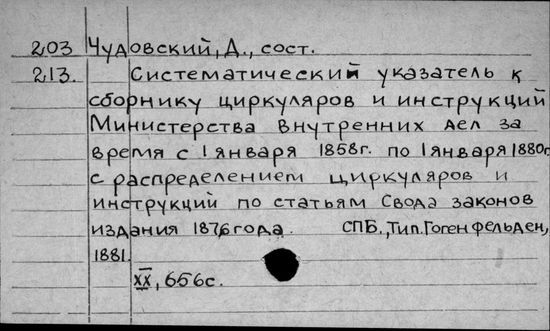 203 Чудовский, Д., сост.
213. Систематический указатель к
сборнику циркуляров и инструкций
Министерства внутренних дел за
время с 1 января 1858г. по 1 января 1880г.
с распределением циркуляров и
инструкций по статьям Свода законов
издания 1876 года. СПБ., Тип. Гогенфельден,
1881.
XX, 656с.